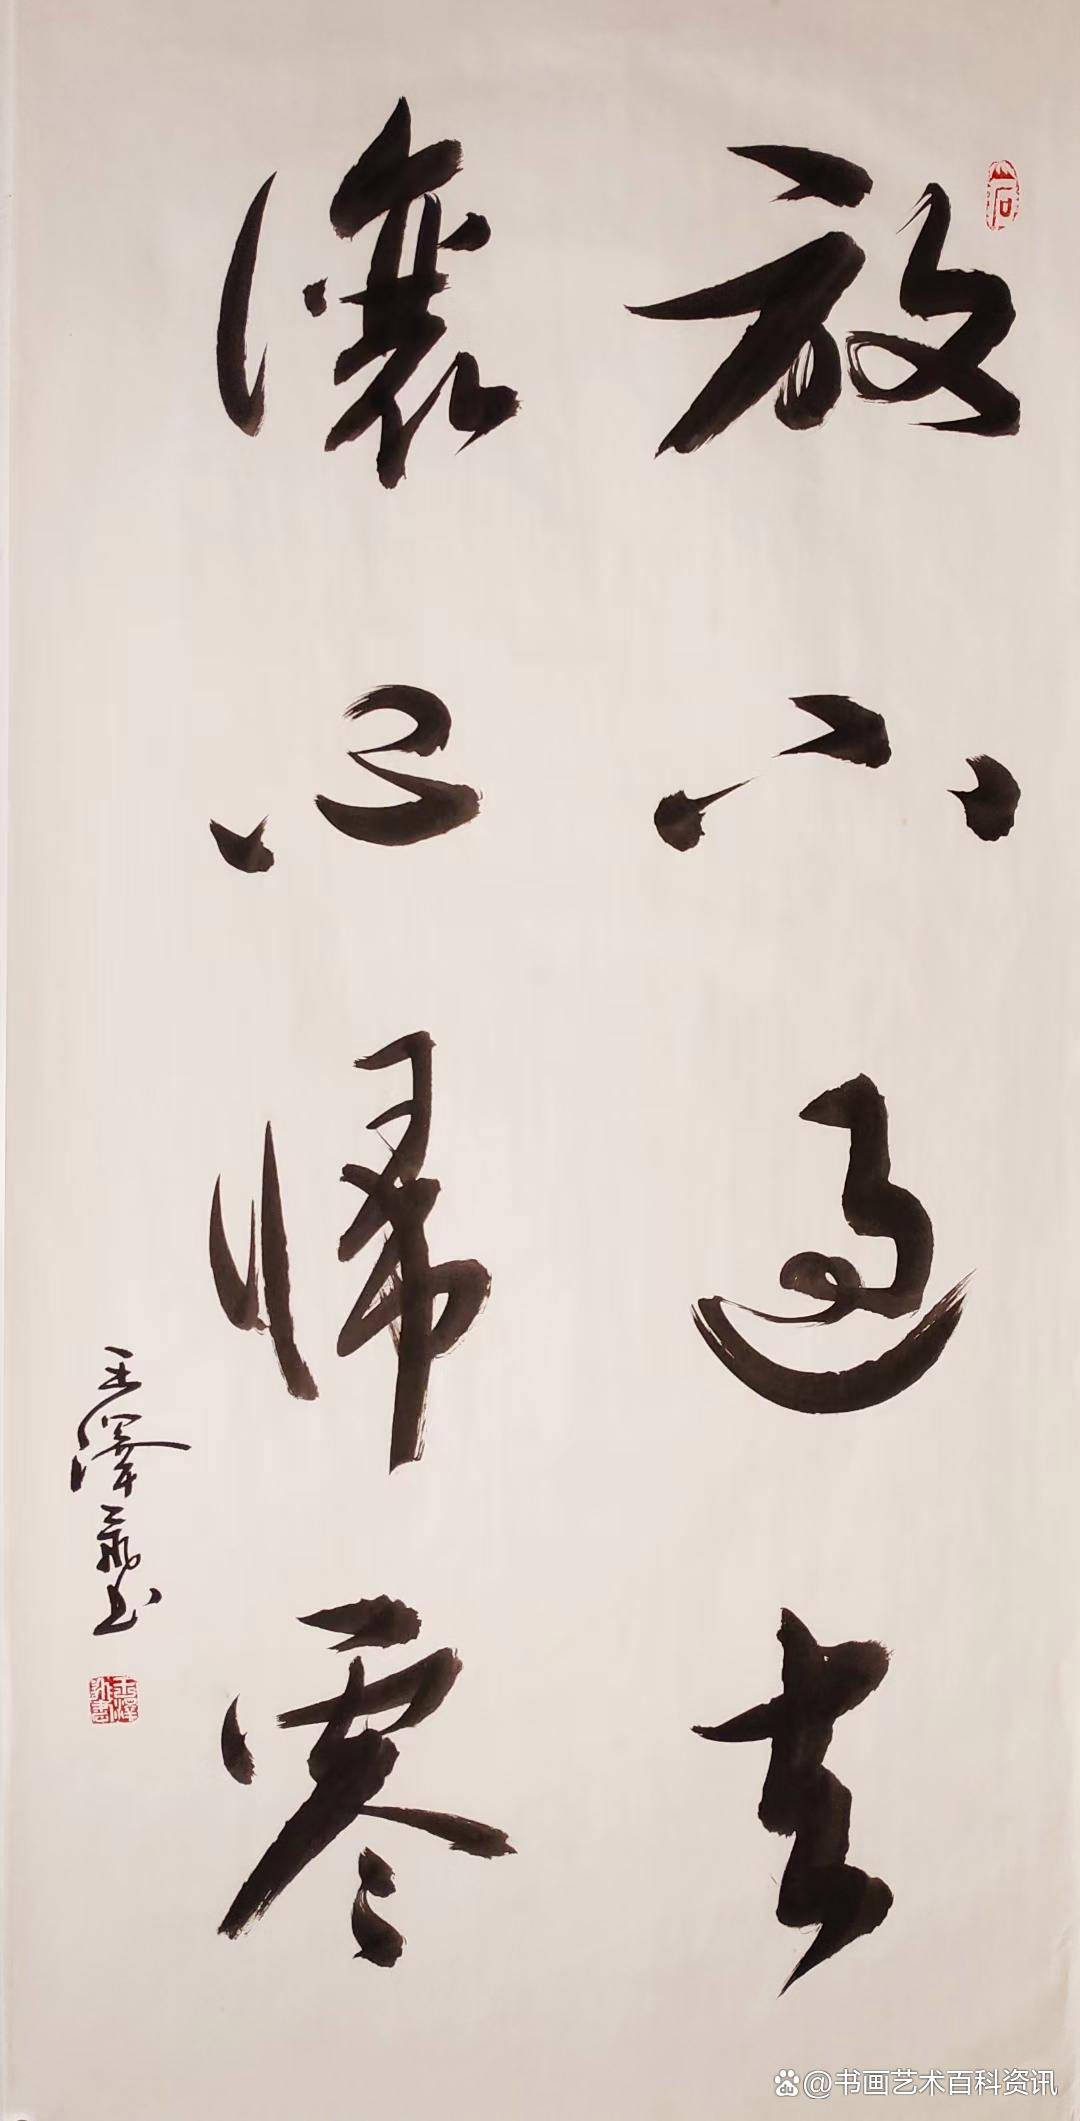 放下過去
讓心歸零
王澤書
@书画艺术百科资讯